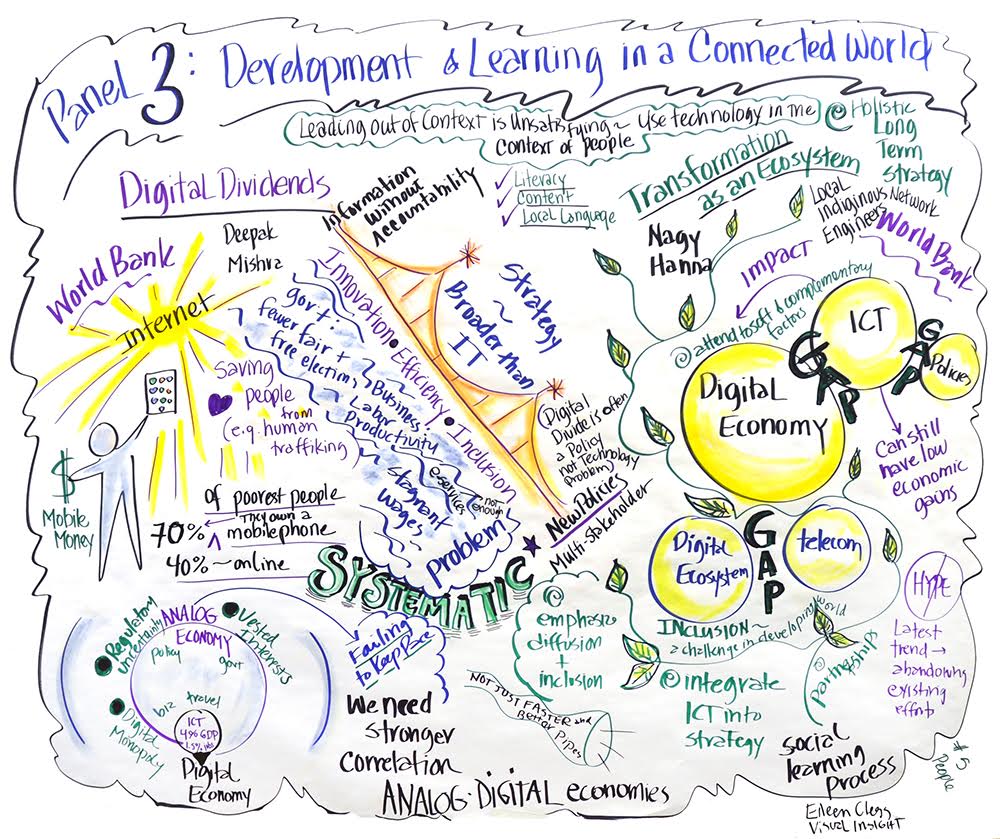 Panel 3: Development & Learning in a Connected World
Leading out of Context is Unsatisfying ~ Use technology in the
Context of people
@ Holistic
Long
Term
Strategy
Digital Dividends
Information
Without
Accountability
✓ Literacy
✓ Content
✓ Local Language
Transformation
as an Ecosystem
Local
Indiginous Network
Engineers
World Bank
Deepak
Mishra
World Bank
Internet
Nagy
Hanna
IMPACT
@ attend to soft & complementary
factors
Innovation • Efficiency • Inclusion
Strategy
~
Broader than
IT
gov't.
fewer fair +
free elections
Business
Labor
Productivity
stagnant
wages
eservices
not
enough
problem
Saving
people
from
(e.g. human
trafficking)
(Digital
Divide is often
a Policy
not Technology
Problem)
New Policies
Multi-stakeholder
Digital
Economy
GAP
ICT
GAP
Policies
Can still
have low
economic
gains
$
Mobile
Money
of poorest people
70%
They own a
mobile phone
40% ~ online
SYSTEMATIC
Digital
Ecosystem
GAP
telecom
INCLUSION ~
a challenge in developing world
HYPE
Latest
trend →
abandoning
existing
effort
ANALOG
ECONOMY
Regulatory
uncertainty
Vested
Interests
policy
govt
biz
travel
Digital
Monopoly
ICT
4% GDP
1.5% jobs
Digital
Economy
Failing
to Keep Pace
We need
stronger
Correlation
ANALOG • DIGITAL economies
@
emphasis
diffusion
+
inclusion
NOT JUST FASTER and
Better Pipes
@ integrate
ICT into
strategy
@ Partnership
social
learning
process
$5
People
Eileen Clegg
Visual Insight